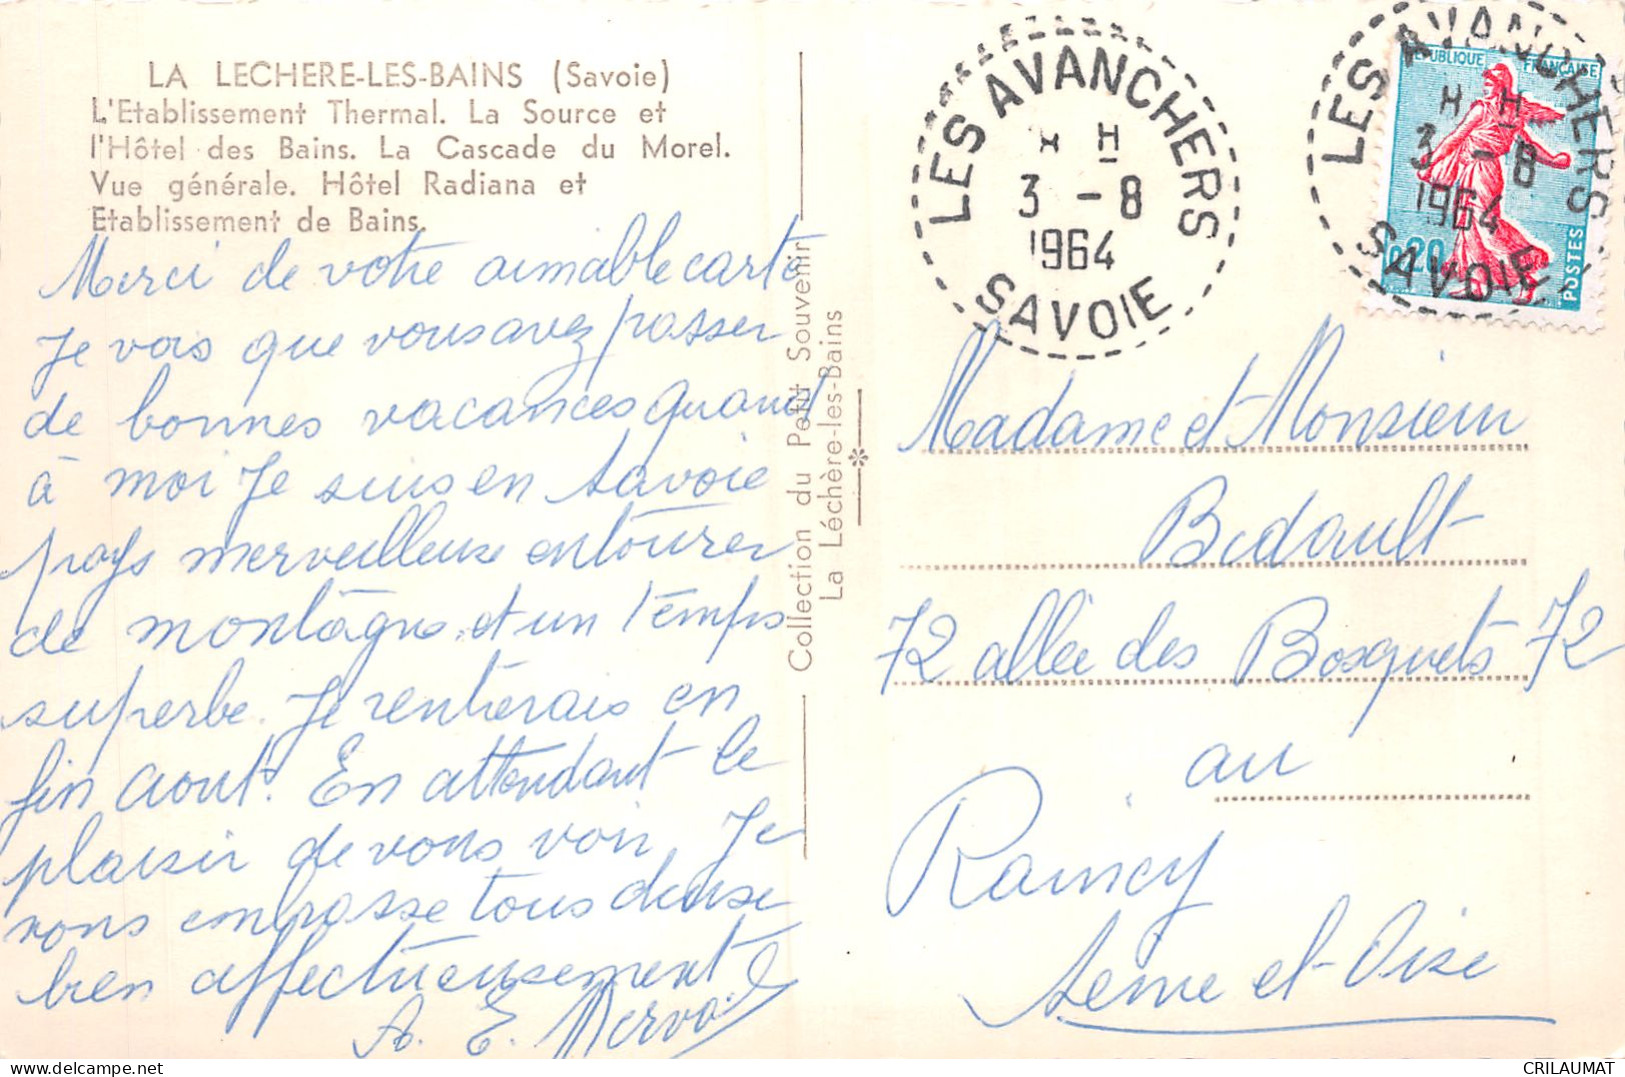 LA LECHERE-LES-BAINS (Savoie)
L'Etablissement Thermal. La Source et
l'Hôtel des Bains. La Cascade du Morel.
Vue générale. Hôtel Radiana et
Etablissement de Bains.
Merci de votre aimable carte
Je vois que vous avez passer
de bonnes vacances quand
à moi Je suis en Savoie
pays merveilleux entourer
de montagne et un temps
superbe. Je rentrerais en
fin aout. En attendant le
plaisir de vous voir Je
vous embrasse tous deux
bien affectueusement
A. E.
Collection du Petit Souvenir
La Léchère-les-Bains
LES AVANCHERS
3 -8
1964
SAVOIE
LES AVANCHERS
3 -8
1964
SAVOIE
REPUBLIQUE FRANÇAISE
0,20
POSTES
Madame et Monsieur
Bidault
72 allée des Bosquets 72
au
Raincy
Seine et-Oise
CRILAUMAT